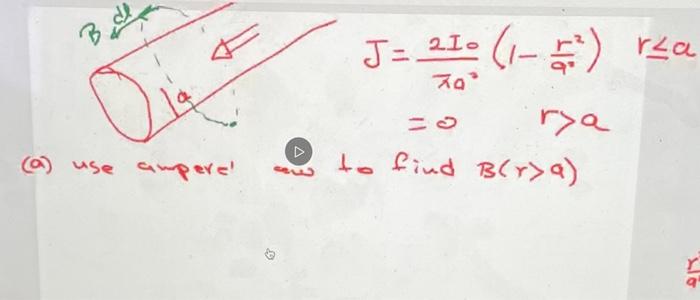 B dl
a
J = 2I₀/πa² (1 - r²/a²) r≤a
= 0 r>a
(a) use ampere' aw to find B(r>a)
r
a